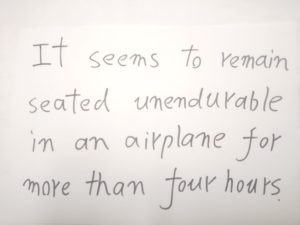 It seems to remain
seated unendurable
in an airplane for
more than four hours.